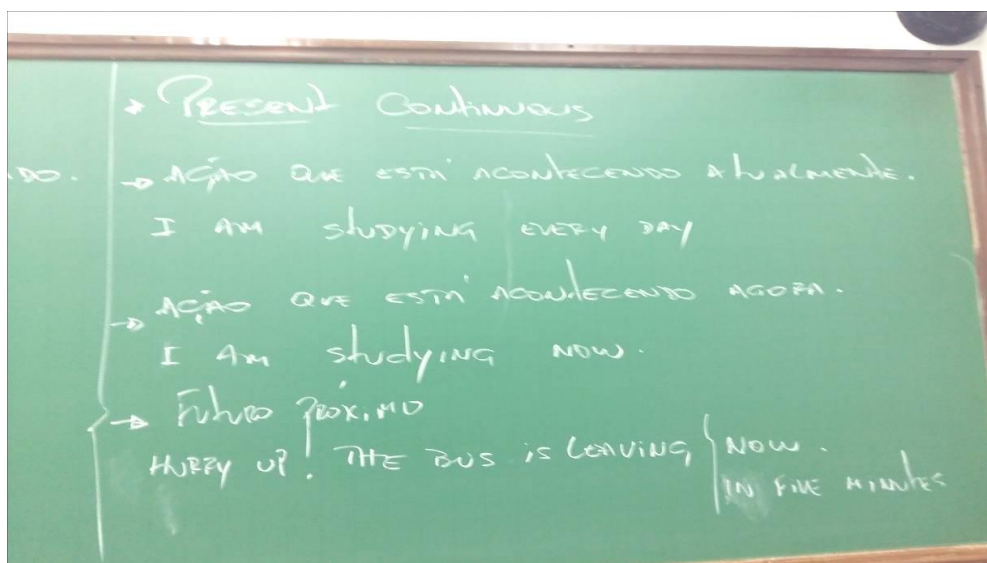 * PRESENT CONTINUOUS
DO. → AÇÃO QUE ESTÁ ACONTECENDO ATUALMENTE.
I AM STUDYING EVERY DAY
→ AÇÃO QUE ESTÁ ACONTECENDO AGORA.
I AM studying NOW.
→ FUTURO PRÓXIMO
HURRY UP! THE BUS IS LEAVING NOW.
IN FIVE MINUTES